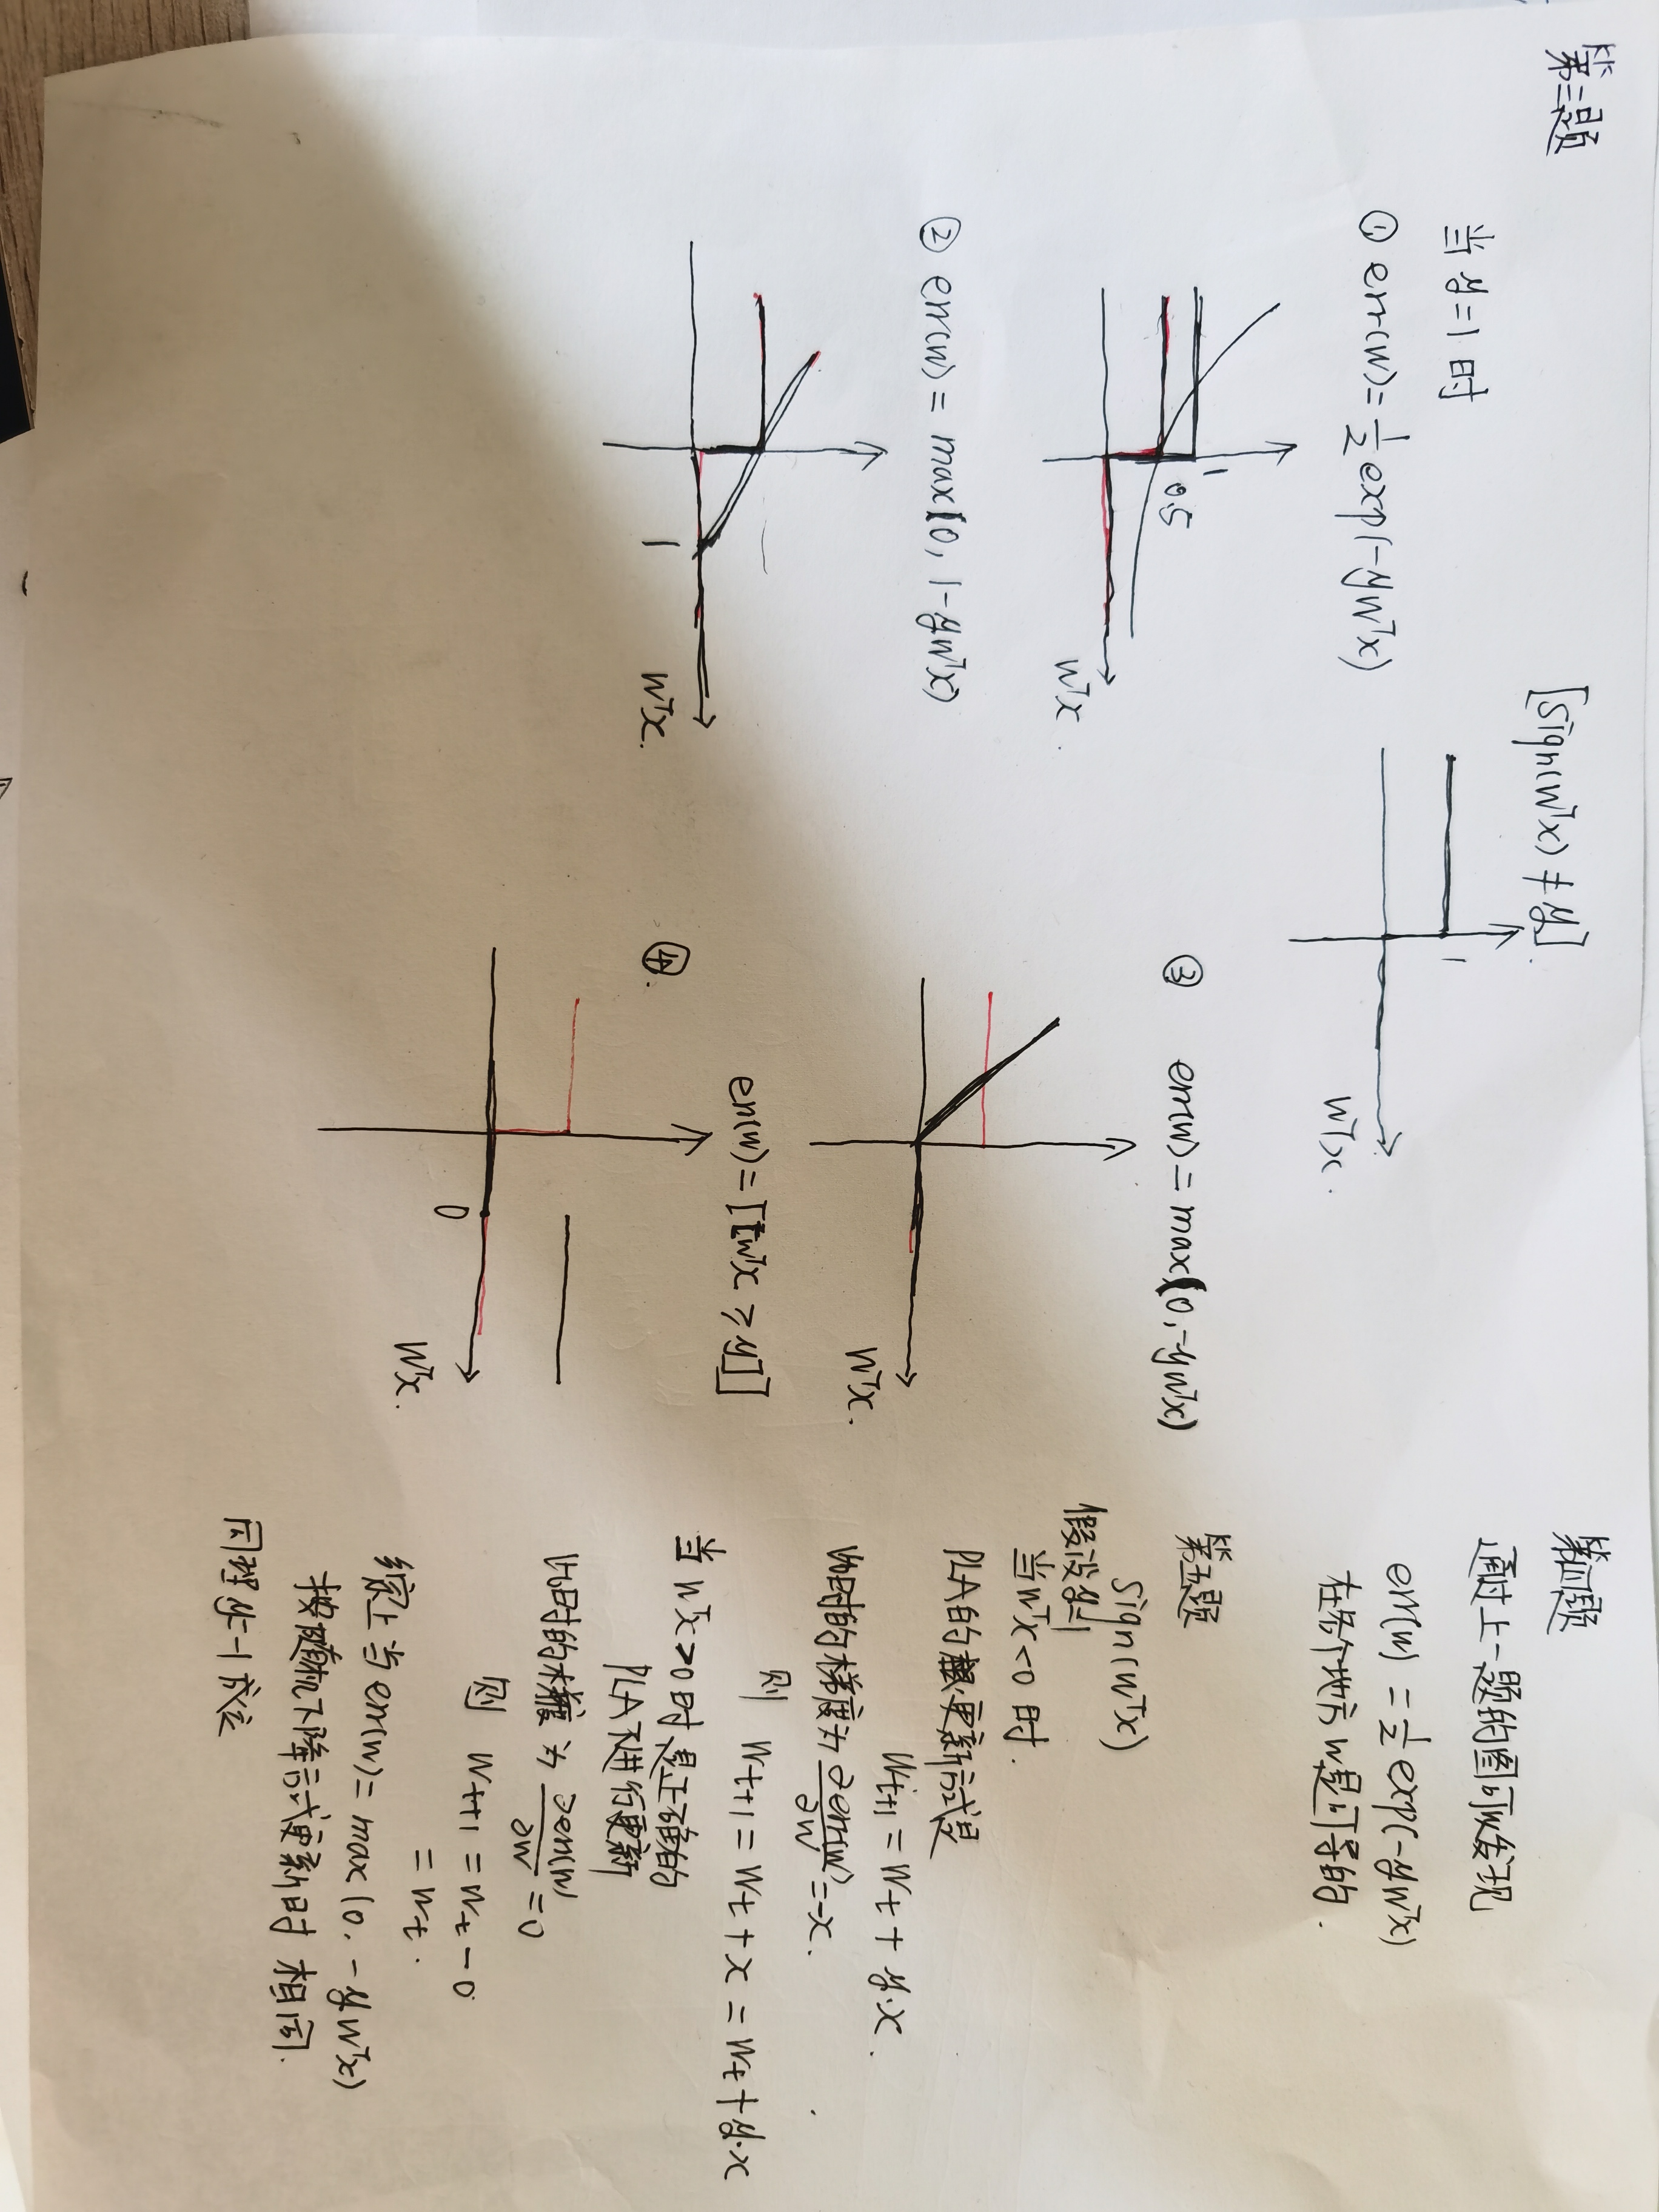 第三题
[sign(wᵀx) ≠ y].
1
wᵀx.
当 y=1 时
① err(w) = 1/2 exp(-ywᵀx)
1
0.5
wᵀx.
② err(w) = max(0, 1-ywᵀx)
1
wᵀx.
③ err(w) = max(0, -ywᵀx)
wᵀx.
err(w) = [[wᵀx ≥ y]]
④.
0
wᵀx.
第四题
通过上一题的图可以发现
err(w) = 1/2 exp(-ywᵀx)
在各个地方 w是可导的.
第五题
sign(wᵀx)
假设y=1
当wᵀx<0 时.
PLA的更新方式是
wₜ₊₁ = wₜ + y·x.
此时的梯度为 ∂err(w)/∂w = -x.
则 wₜ₊₁ = wₜ + x = wₜ + y·x
当 wᵀx>0 时 是正确的
PLA不进行更新
此时的梯度为 ∂err(w)/∂w = 0
则 wₜ₊₁ = wₜ - 0
= wₜ.
综上当 err(w) = max(0, -ywᵀx)
按随机下降方式更新时 相同.
同理 y=-1 成立